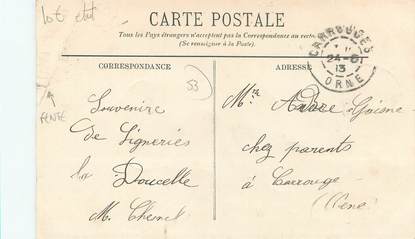 lot etat
CARTE POSTALE
Tous les Pays étrangers n'acceptent pas la Correspondance au recto
(Se renseigner à la Poste).
CORRESPONDANCE
ADRESSE
CARROUGES
24-6
13
ORNE
53
FENTE
Souvenire
de Ligneries
la Doucelle
M.
Mr
chez parents
à Carrouge
Orne